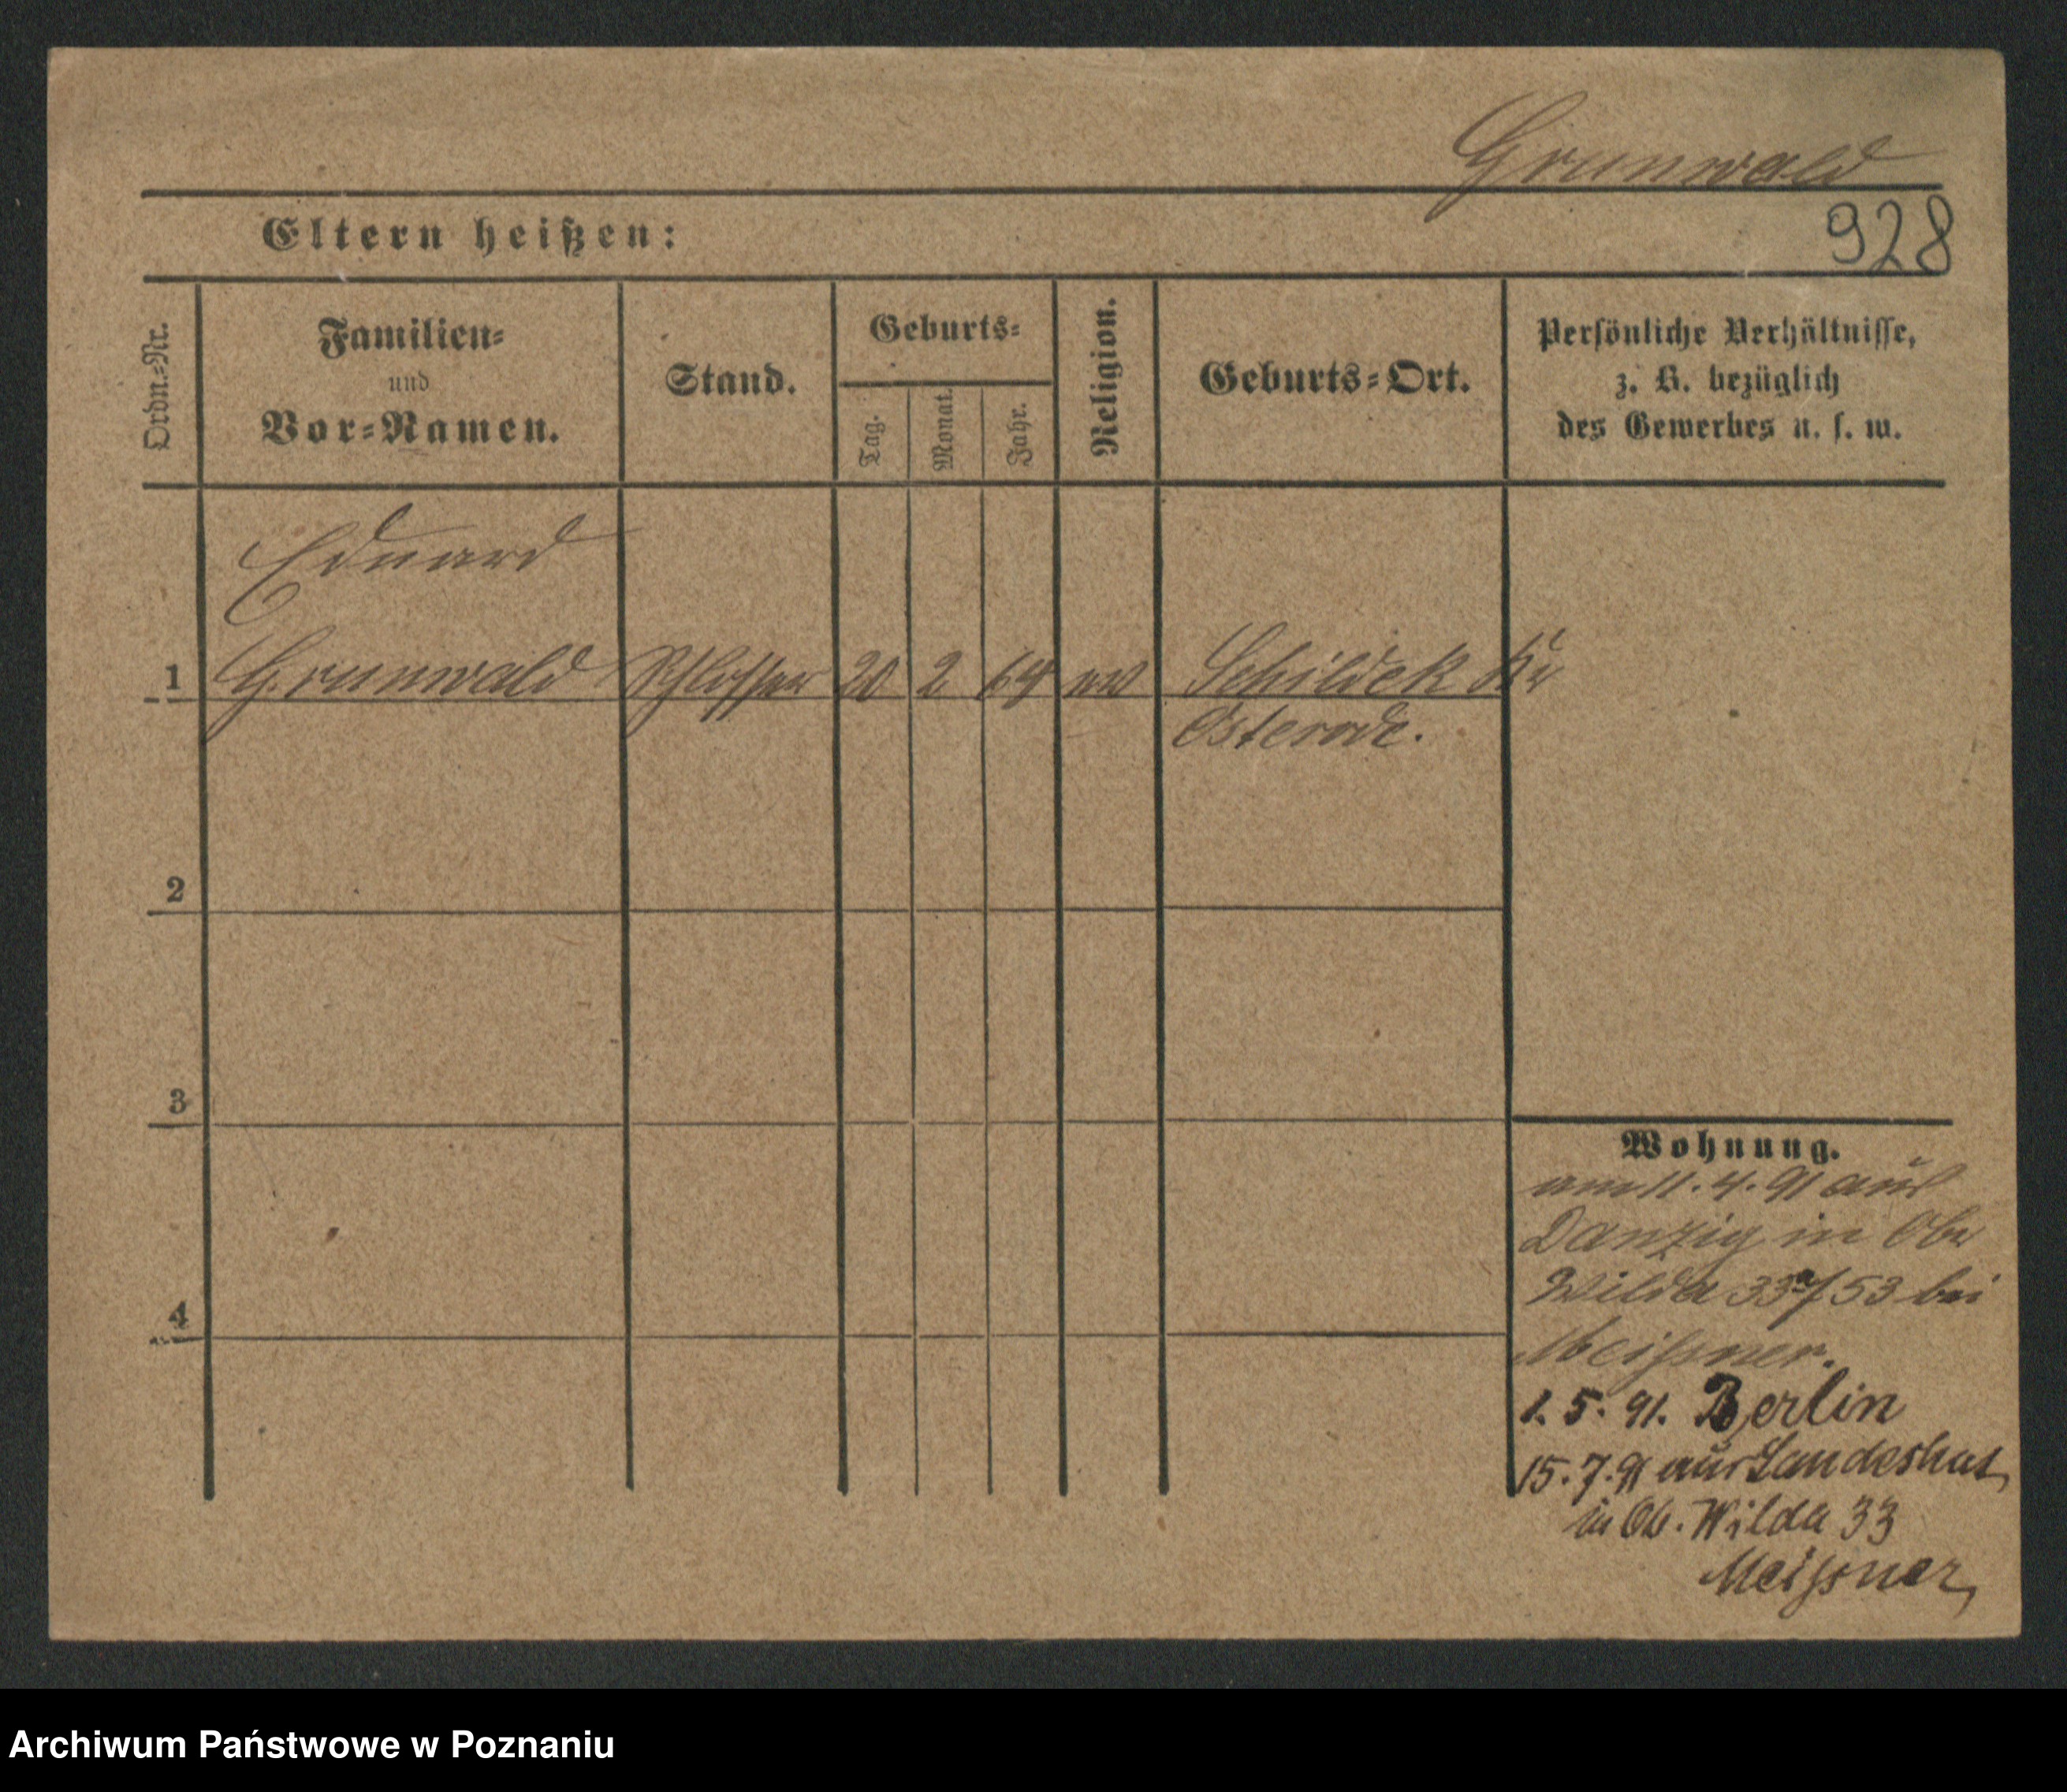 Grunwald
928
Eltern heißen:
Ordn.-Nr.
Familien-
und
Vor-Namen.
Stand.
Geburts-
Tag.
Monat.
Jahr.
Religion.
Geburts-Ort.
Persönliche Verhältnisse,
z. B. bezüglich
des Gewerbes u. s. w.
Eduard
1 Grunwald Schlosser 20 2 64 ev Schildek Kr
Osterode.
2
3
4
Wohnung.
am 11. 4. 91 aus
Danzig in Ober
Wilda 33a/53 bei
Meissner.
1. 5. 91. Berlin
15. 7. 91 aus Landeshut
in Ob. Wilda 33
Meissner
Archiwum Państwowe w Poznaniu